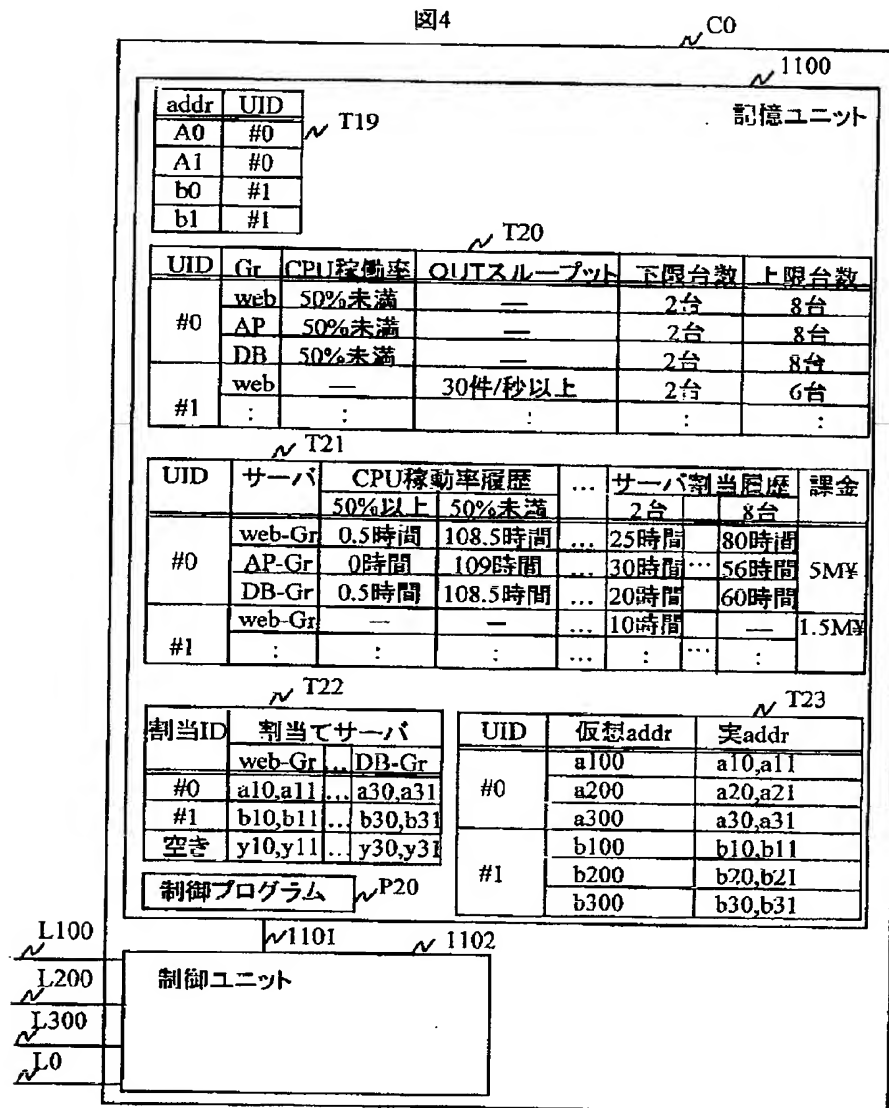 図4
C0
1100
記憶ユニット
addr UID
A0 #0
A1 #0
b0 #1
b1 #1
T19
T20
UID Gr CPU稼働率 OUTスループット 下限台数 上限台数
#0
web 50%未満 — 2台 8台
AP 50%未満 — 2台 8台
DB 50%未満 — 2台 8台
#1
web — 30件/秒以上 2台 6台
: : : : :
T21
UID サーバ CPU稼動率履歴 … サーバ割当履歴 課金
50%以上 50%未満 2台 8台
#0
web-Gr 0.5時間 108.5時間 … 25時間 80時間
AP-Gr 0時間 109時間 … 30時間 … 56時間 5M¥
DB-Gr 0.5時間 108.5時間 … 20時間 60時間
#1
web-Gr — — … 10時間 — 1.5M¥
: : : … : … : :
T22
割当ID 割当てサーバ
web-Gr … DB-Gr
#0 a10,a11 … a30,a31
#1 b10,b11 … b30,b31
空き y10,y11 … y30,y31
T23
UID 仮想addr 実addr
#0
a100 a10,a11
a200 a20,a21
a300 a30,a31
#1
b100 b10,b11
b200 b20,b21
b300 b30,b31
制御プログラム P20
1101
1102
制御ユニット
L100
L200
L300
L0